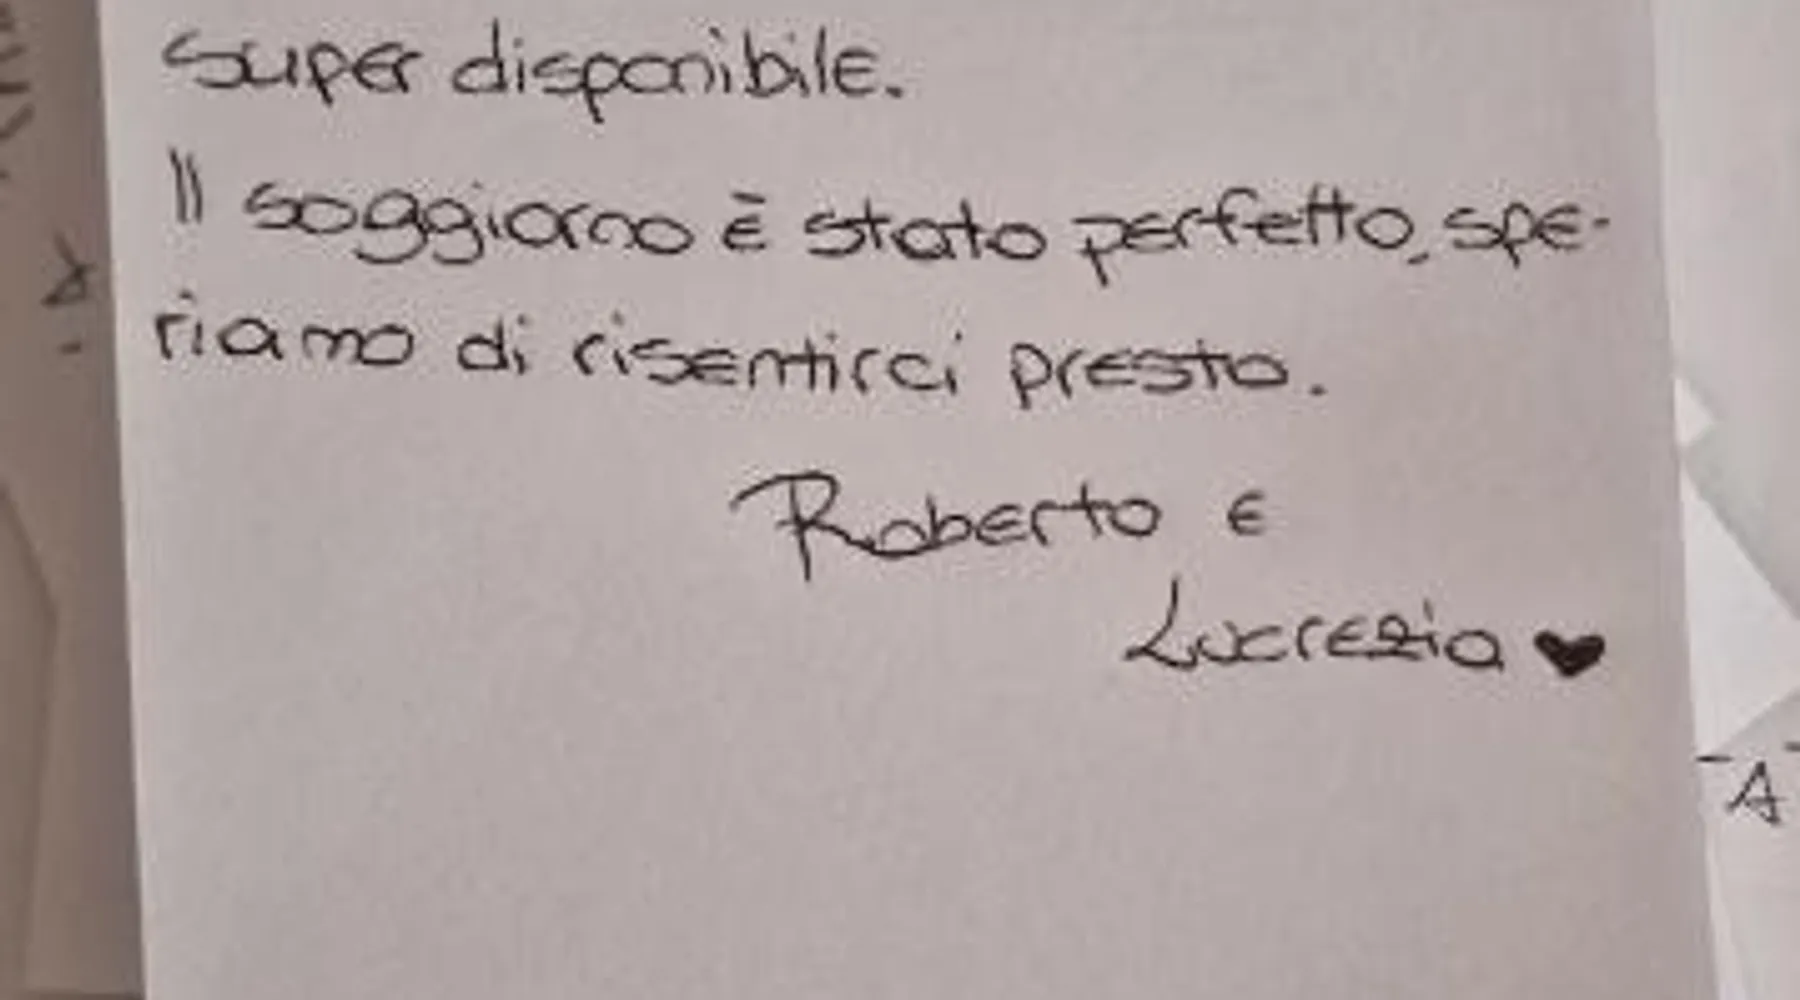 super disponibile.
Il soggiorno è stato perfetto, spe-
riamo di risentirci presto.
Roberto e
Lucrezia ♥
-A-